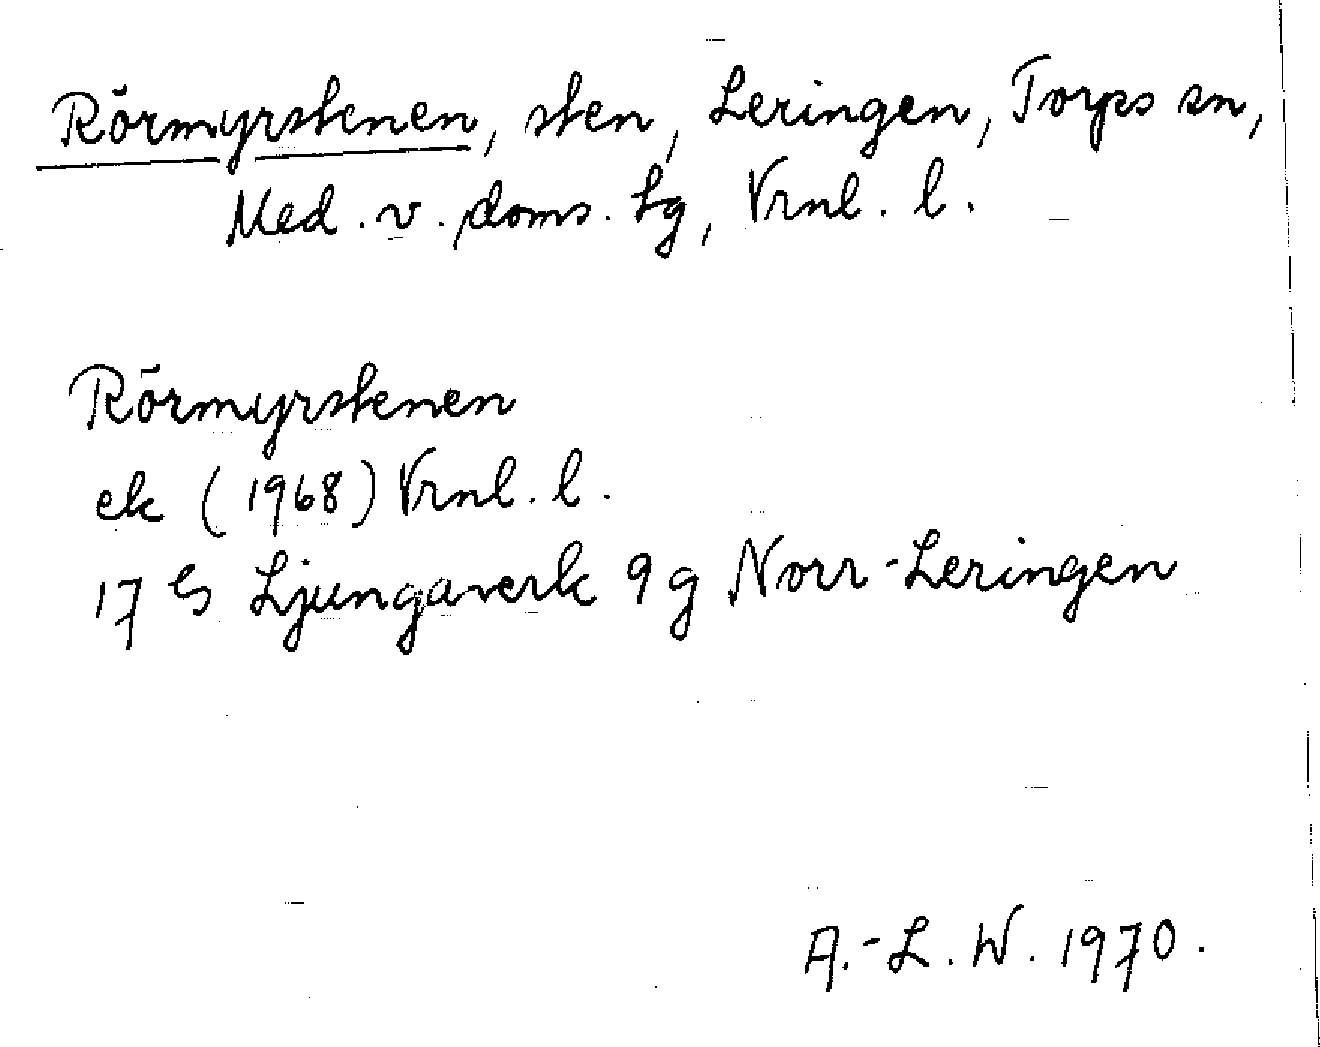 Rörmyrstenen, sten, Leringen, Torps sn,
Med. v. doms. hg, Vrnl. l.
Rörmyrstenen
ek (1968) Vrnl. l.
17 G Ljungaverk 9g Norr-Leringen
A.-L. W. 1970.